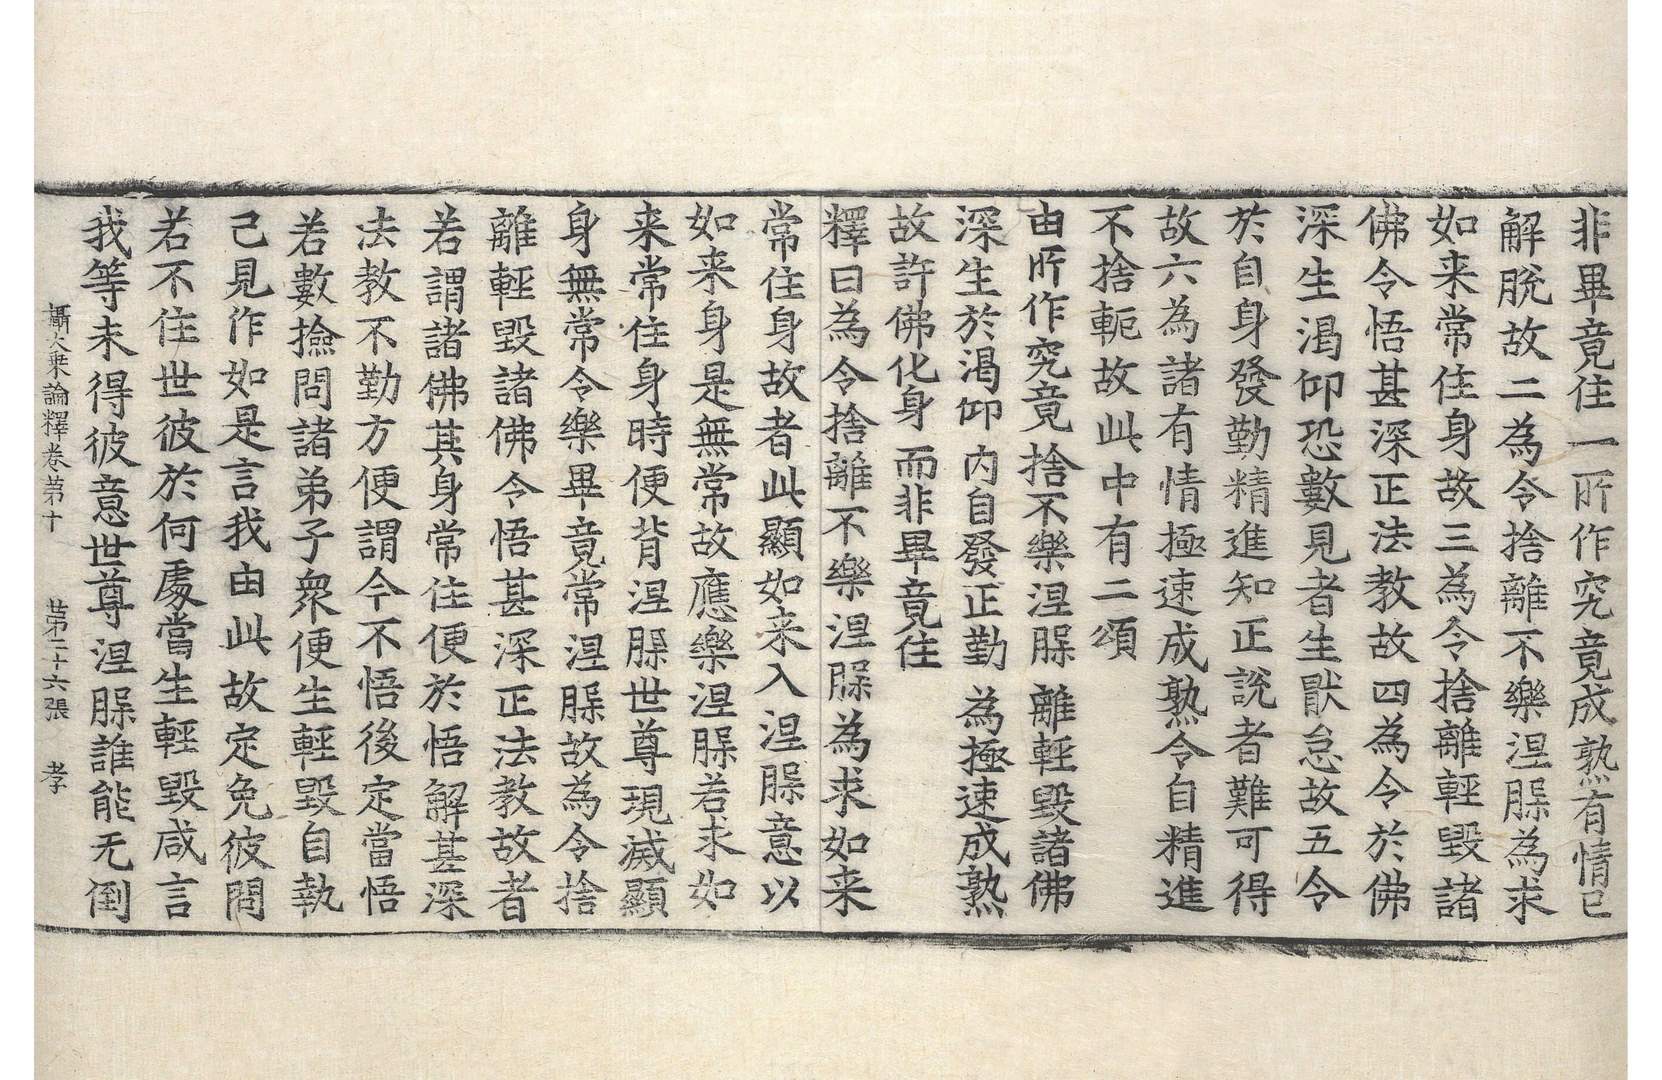 非畢竟住一所作究竟成熟有情已
解脫故二為令捨離不樂涅脲為求
如来常住身故三為令捨離輕毀諸
佛令悟甚深正法教故四為令於佛
深生渴仰恐數見者生猒怠故五令
於自身發勤精進知正說者難可得
故六為諸有情極速成熟令自精進
不捨軛故此中有二頌
由所作究竟 捨不樂涅脲 離輕毀諸佛
深生於渴仰 內自發正勤 為極速成熟
故許佛化身 而非畢竟住
釋曰為令捨離不樂涅脲為求如来
常住身故者此顯如来入涅脲意以
如来身是無常故應樂涅脲若求如
来常住身時便背涅脲世尊現滅顯
身無常令樂畢竟常涅脲故為令捨
離輕毀諸佛令悟甚深正法教故者
若謂諸佛其身常住便於悟解甚深
法教不勤方便謂今不悟後定當悟
若數撿問諸弟子衆便生輕毀自執
己見作如是言我由此故定免彼問
若不住世彼於何處當生輕毀咸言
我等未得彼意世尊涅脲誰能无倒
攝大乘論釋卷第十 第二十六張 孝